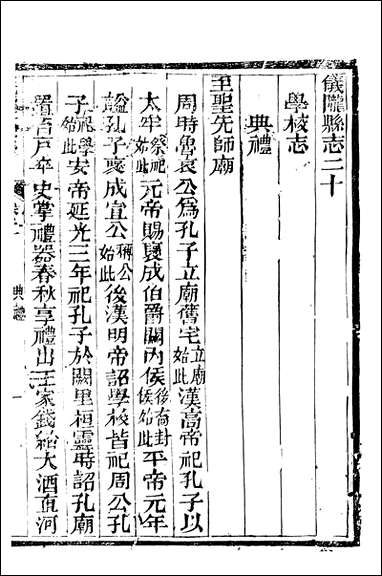 儀隴縣志二十
學校志
典禮
至聖先師廟
周時魯哀公爲孔子立廟舊宅立廟始此漢高帝祀孔子以
太牢祭祀始此元帝賜褒成伯爵關內侯後裔封侯始此平帝元年
諡孔子褒成宣公稱公始此後漢明帝詔學校皆祀周公孔
子祀學始此安帝延光三年祀孔子於闕里桓靈時詔孔廟
置百戶卒史掌禮器春秋享禮出王家錢給大酒直河
典禮
一